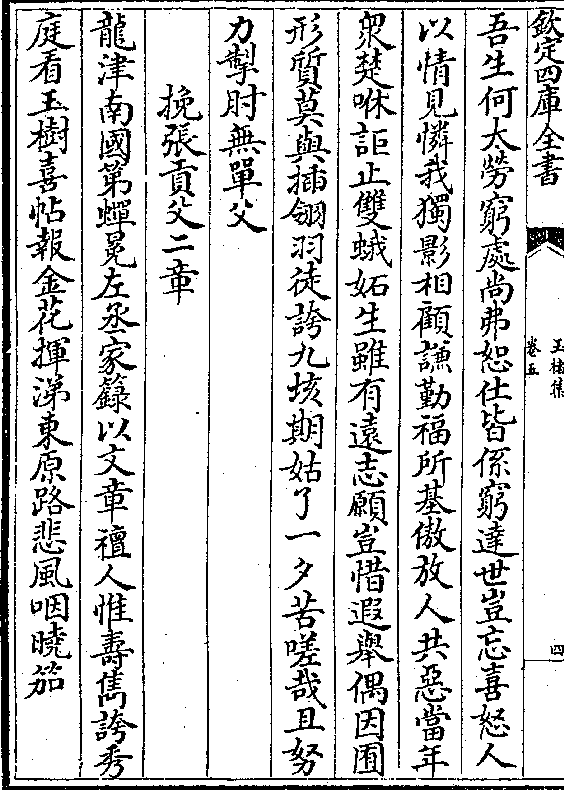 欽定四庫全書
玉楮集
卷五
四
吾生何太勞窮處尚弗恕仕皆係窮達世豈忘喜怒人
以情見憐我獨影相顧謙勤福所基傲放人共惡當年
衆楚咻詎止雙蛾妬生雖有遠志願豈惜遐舉偶因囿
形質莫與插翎羽徒誇九垓期姑了一夕苦嗟哉且努
力掣肘無單父
挽張貢父二章
龍津南國第蟬冕左丞家籙以文章襢人惟壽雋誇秀
庭看玉樹喜帖報金花揮涕東原路悲風咽曉笳